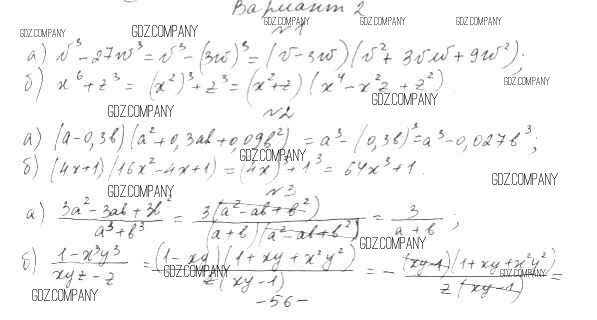 Вариант 2
GDZ.COMPANY GDZ.COMPANY GDZ.COMPANY GDZ.COMPANY GDZ.COMPANY
№1
а) v³ - 27w³ = v³ - (3w)³ = (v - 3w)(v² + 3vw + 9w²);
б) x⁶ + z³ = (x²)³ + z³ = (x² + z)(x⁴ - x²z + z²)
GDZ.COMPANY
GDZ.COMPANY
GDZ.COMPANY
№2
а) (a - 0,3b)(a² + 0,3ab + 0,09b²) = a³ - (0,3b)³ = a³ - 0,027b³;
GDZ.COMPANY
б) (4x + 1)(16x² - 4x + 1) = (4x)³ + 1³ = 64x³ + 1.
GDZ.COMPANY
GDZ.COMPANY
№3
а) (3a² - 3ab + 3b²)/(a³ + b³) = 3(a² - ab + b²)/((a + b)(a² - ab + b²)) = 3/(a + b);
GDZ.COMPANY
б) (1 - x³y³)/(xyz - z) = (1 - xy)(1 + xy + x²y²)/(z(xy - 1)) = - (xy - 1)(1 + xy + x²y²)/(z(xy - 1)) =
GDZ.COMPANY GDZ.COMPANY
GDZ.COMPANY
-56-